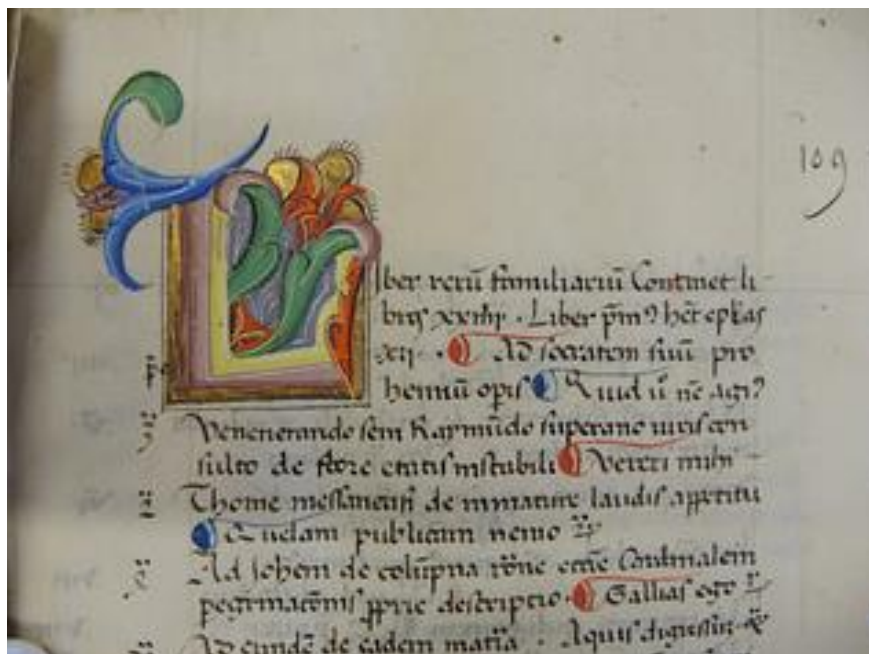 109
Liber rerū familiariū Continet li-
bros xxiiij . Liber pͫmꝰ hꝫt epl̄as
xij . Ad socratem suū pro
hemiū opis Quid ū nē agi?
Venenerando sem Raymūdo superano iuris con
sulto de flore etatis instabili Vereri mihi
Thome messanensi de inmature laudis appetitu
Quelam publicam nemo
Ad Iohem de colūpna rōne ecc̄e Cardinalem
pegrinac̄onis ꝓprie descriptio . Gallias ego
Ad eundē de eadem mat̄ia . Aquis digressus